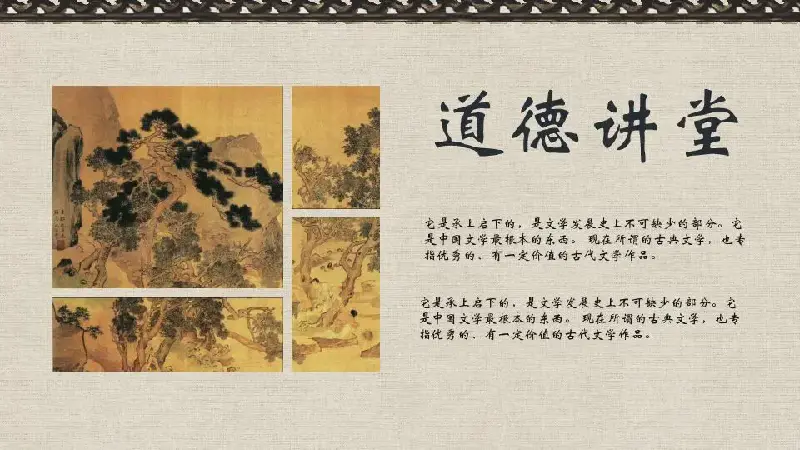 道德讲堂
它是承上启下的，是文学发展史上不可缺少的部分。它
是中国文学最根本的东西。 现在所谓的古典文学，也专
指优秀的、有一定价值的古代文学作品。
它是承上启下的，是文学发展史上不可缺少的部分。它
是中国文学最根本的东西。 现在所谓的古典文学，也专
指优秀的、有一定价值的古代文学作品。